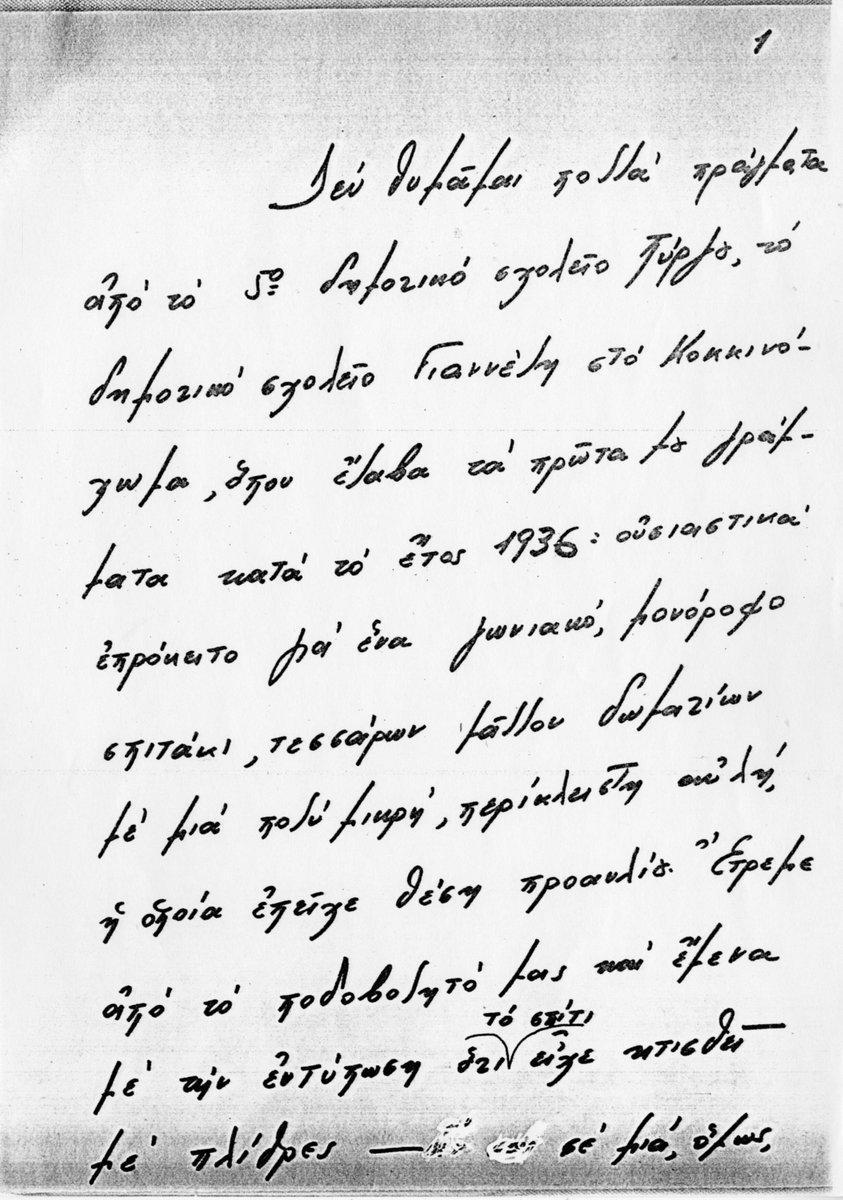 1
Δέν θυμᾶμαι πολλά πράγματα
ἀπό τό 5ο δημοτικό σχολεῖο Πύργου, τό
δημοτικό σχολεῖο Γιαννέλη στό Κοκκινό-
χωμα, ὅπου ἔλαβα τά πρῶτα μου γράμ-
ματα κατά τό ἔτος 1936: οὐσιαστικά
ἐπρόκειτο γιά ἕνα γωνιακό, μονόροφο
σπιτάκι, τεσσάρων μᾶλλον δωματίων
μέ μιά πολύ μικρή, περίκλειστη αὐλή,
ἡ ὁποία ἐπεῖχε θέση προαυλίου. Ἔτρεμε
ἀπό τό ποδοβολητό μας καί ἔμενα
τό σπίτι
μέ τήν ἐντύπωση ὅτι εἶχε κτισθεῖ—
μέ πλίθρες — σέ μιά, ὅμως,